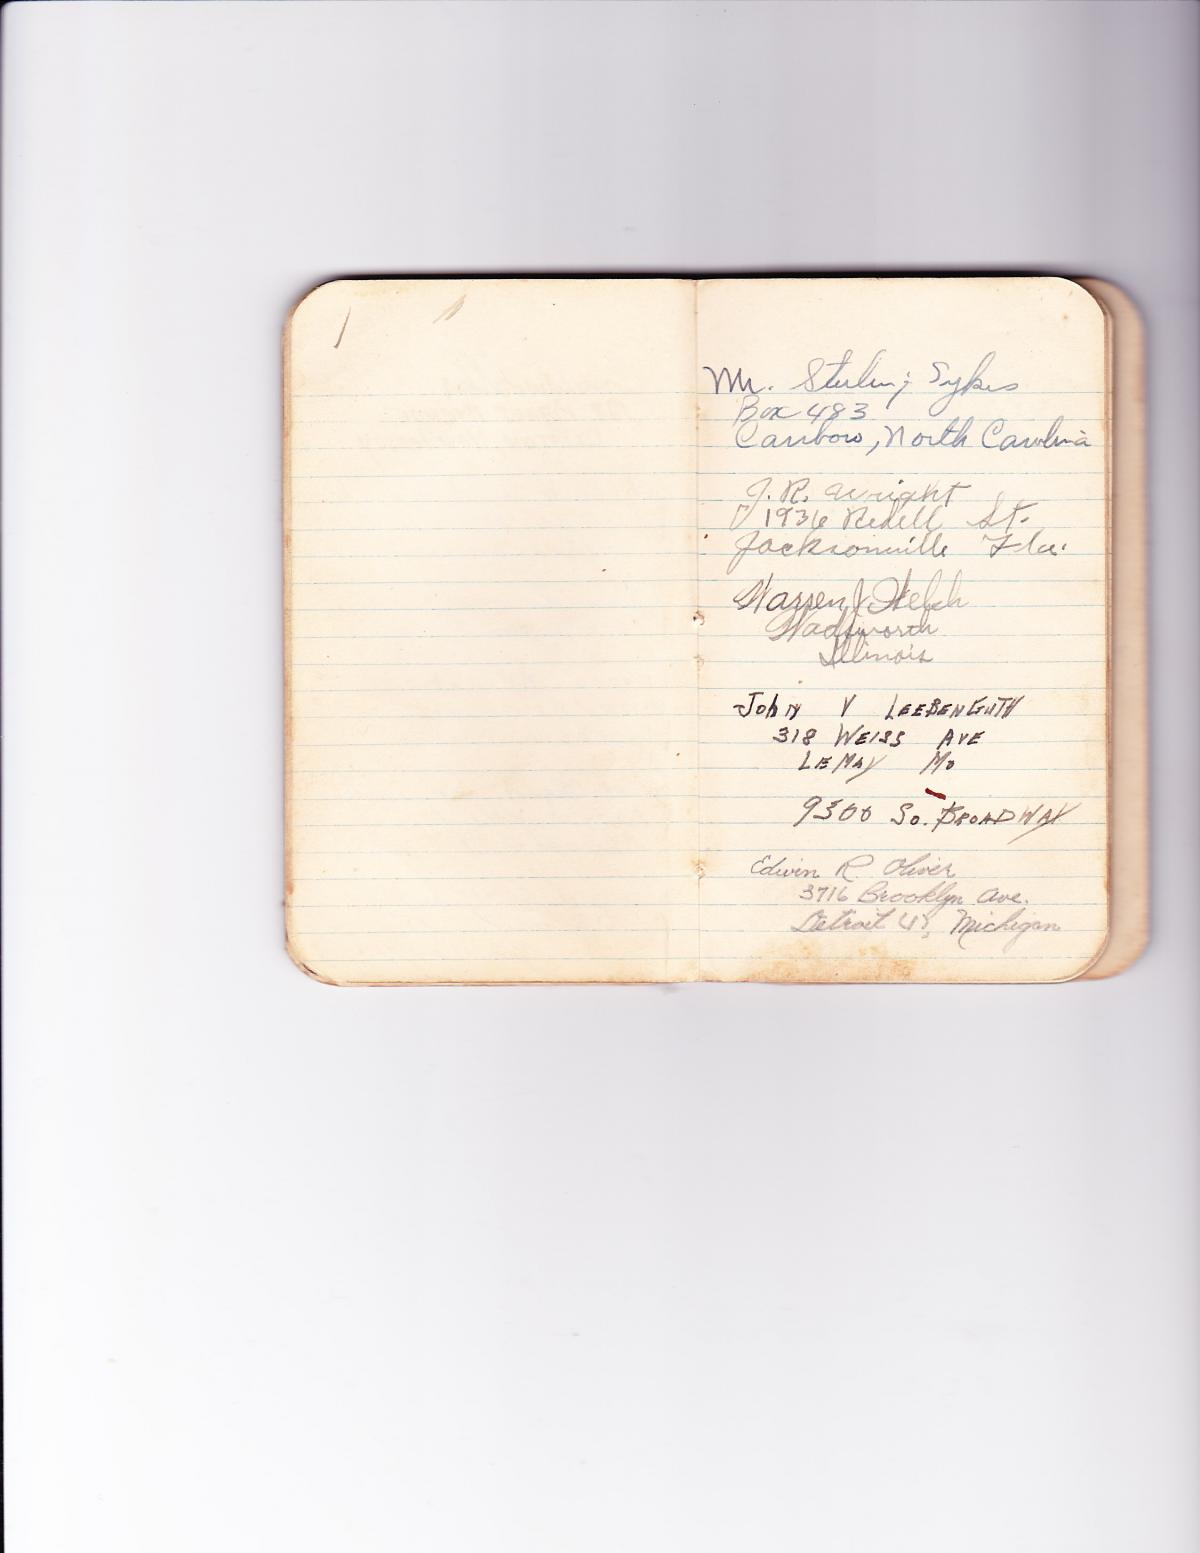 Mr. Sterling Sykes
Box 483
Carrboro, North Carolina
J. R. Wright
1936 St.
Jacksonville Fla.
Warren J. Welch
Wadsworth
Illinois
John V LEEBENGUTH
318 WEISS AVE
LEMAY Mo
9300 So. BROADWAY
Edwin R. Oliver
3716 Brooklyn Ave.
Detroit Michigan